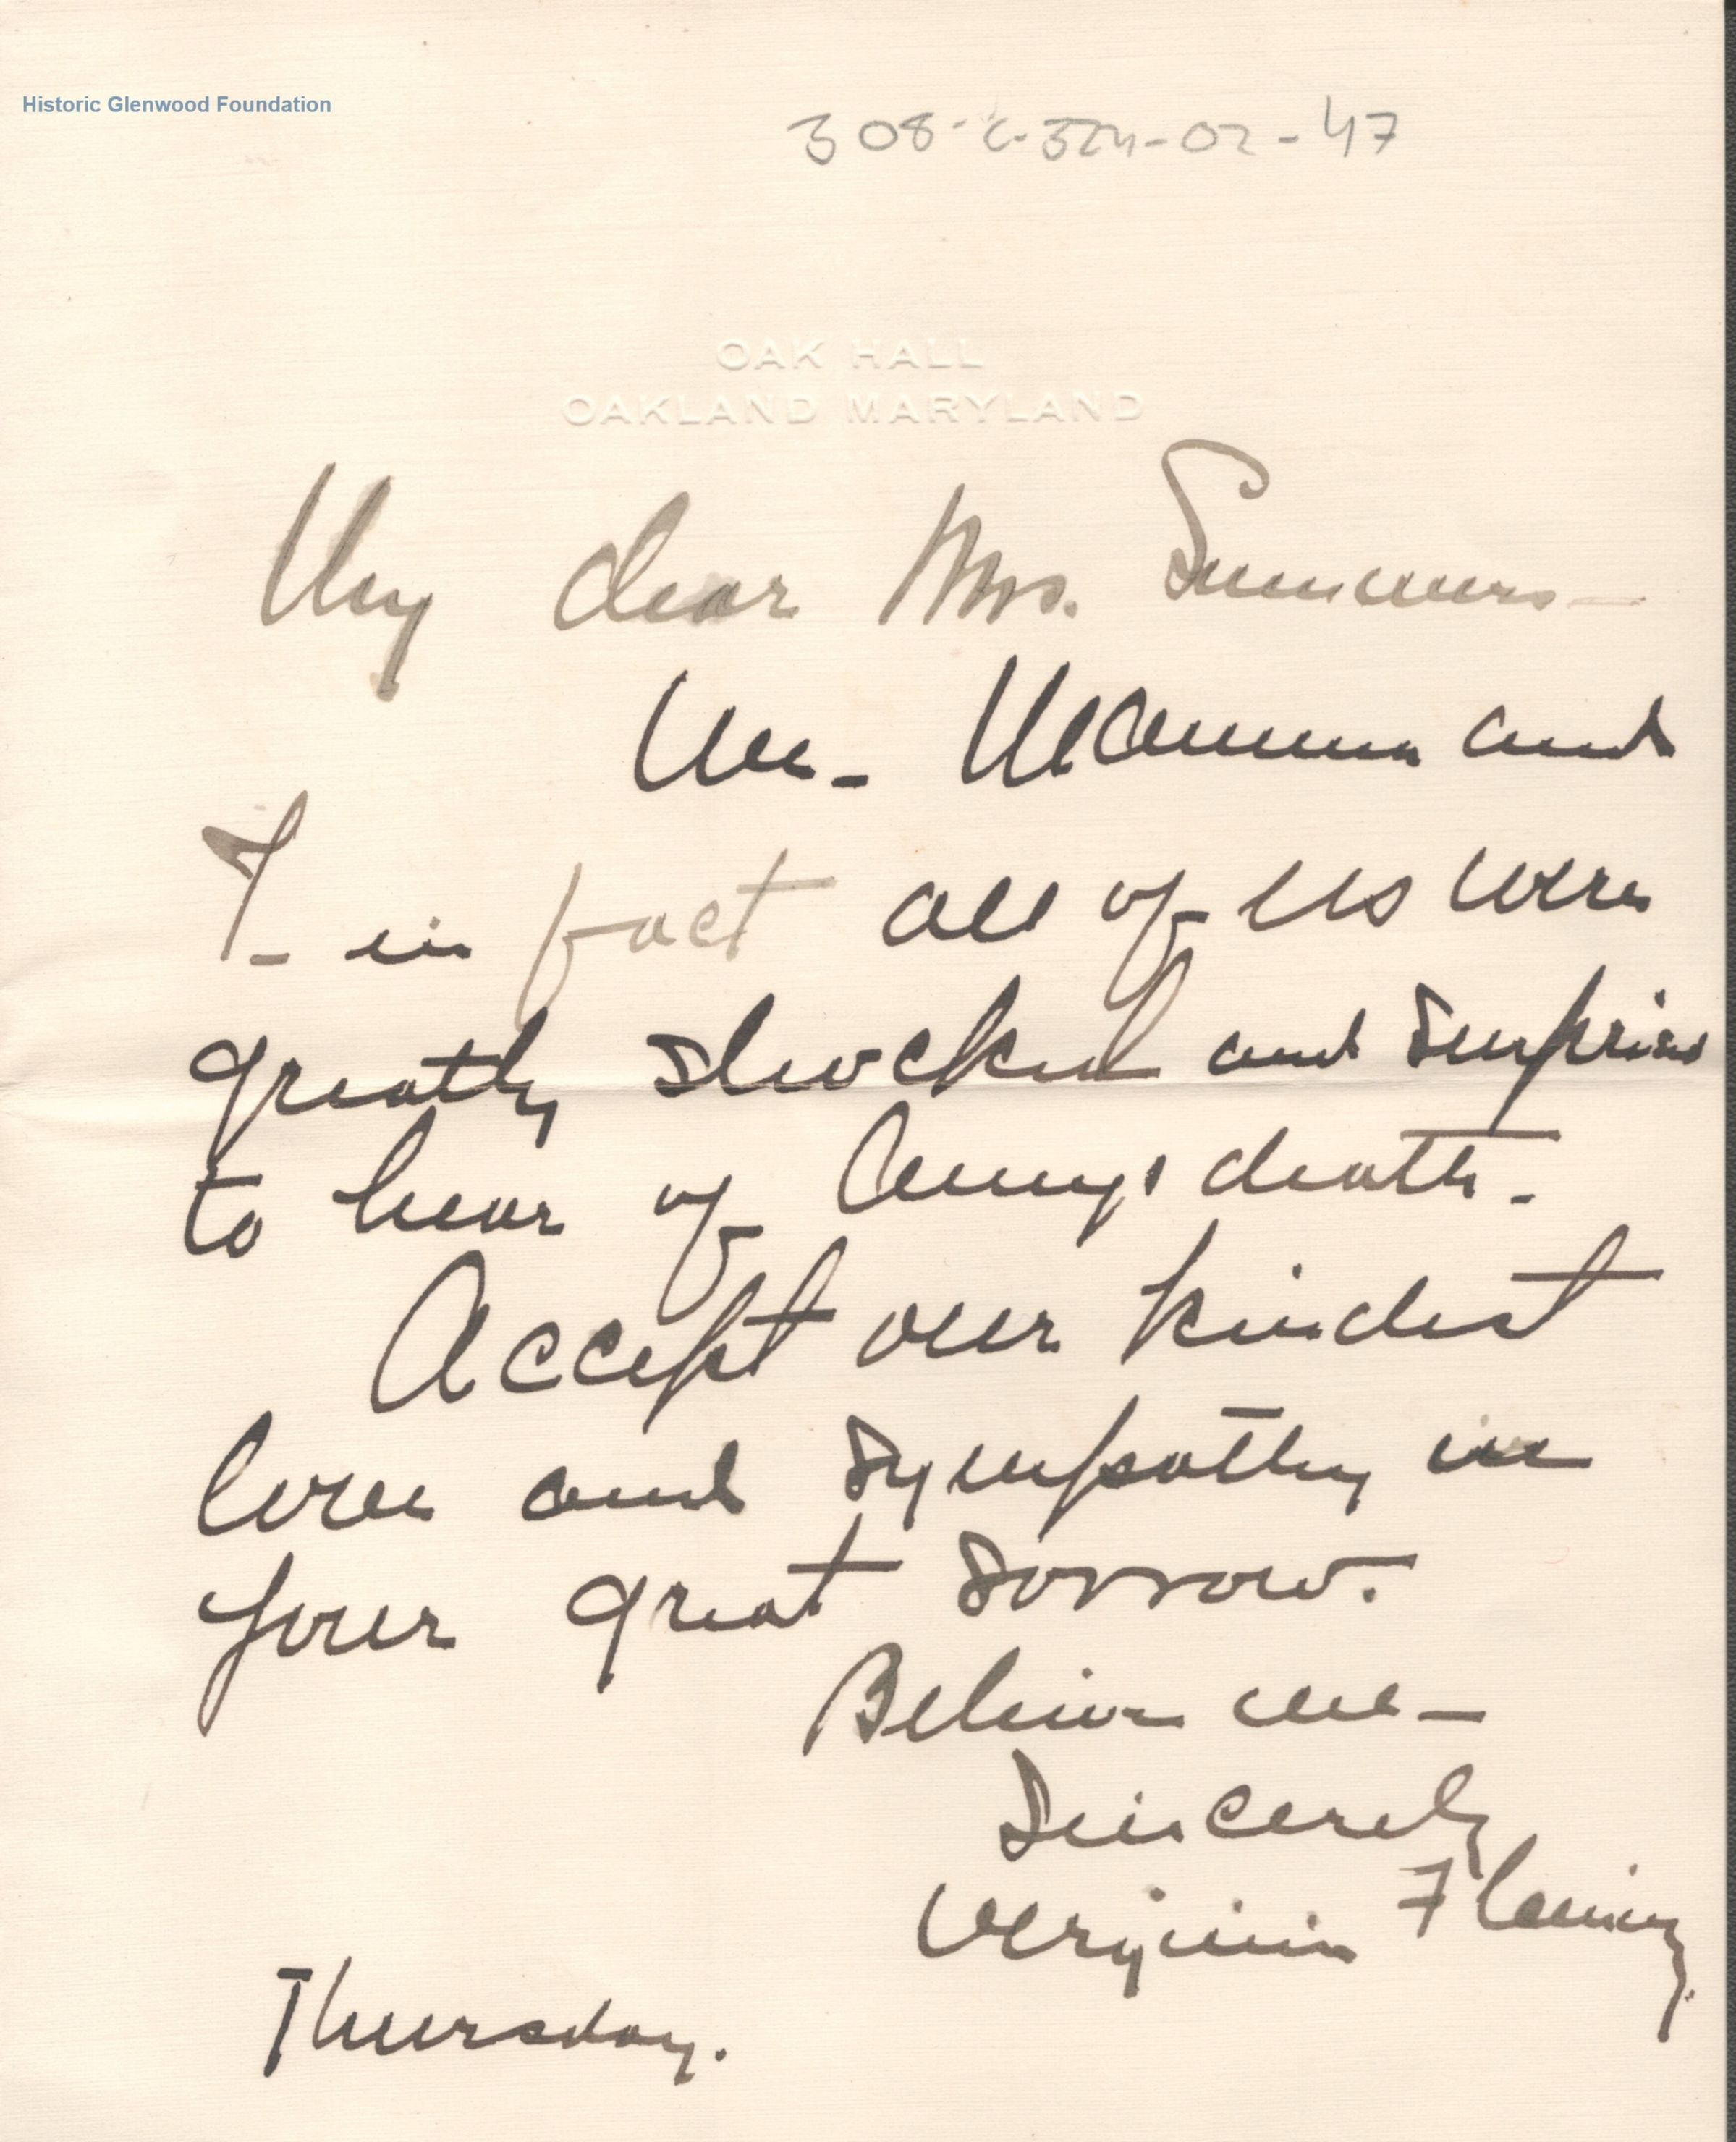 Historic Glenwood Foundation
308-C-524-02-47
OAK HALL
OAKLAND MARYLAND
My dear Mrs. Summers—
Me- Mamma and
I- in fact all of us were
greatly shocked and surprised
to hear of death.
Accept our kindest
love and sympathy in
your great sorrow.
Believe me—
Sincerely
Virginia Fleming.
Thursday.